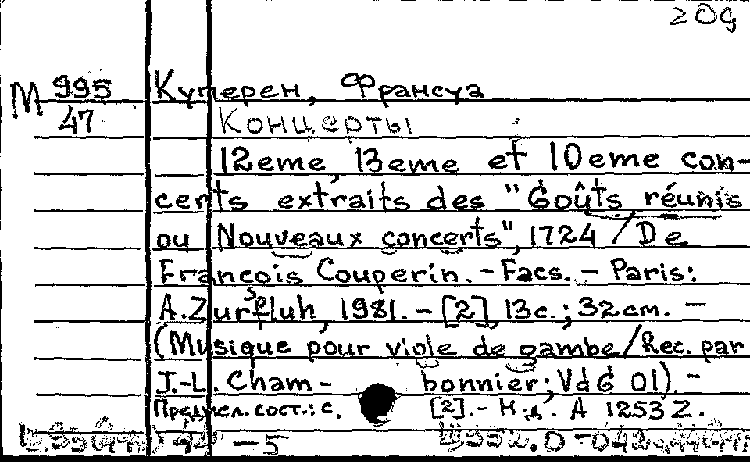 209
М 995 Куперен, Франсуа
47 Концерты
12eme, 13eme et 10eme con-
certs extraits des "Goûts réunis
ou Nouveaux concerts", 1724 / De
François Couperin. - Facs. - Paris:
A. Zurfluh, 1981. - [2], 13с.; 32см. -
(Musique pour viole de gambe / Rec. par
J.-L. Cham- bonnier; VdG 01). -
Предисл. сост.: с. [2]. - Н.д. A 1253 Z.
- 5